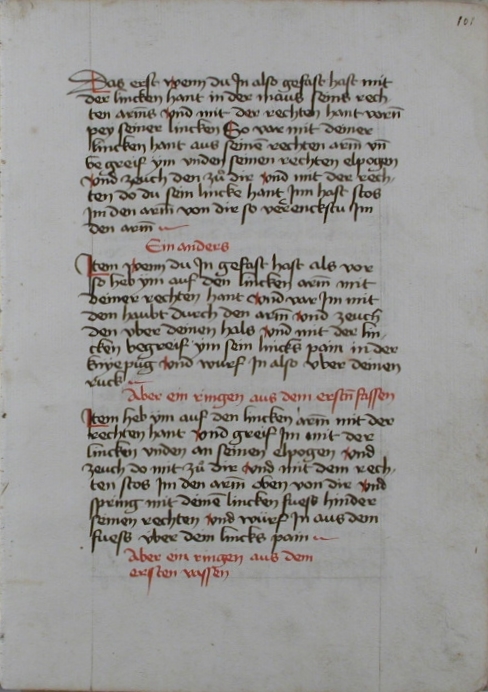 101
Das erst wenn du In also gefast hast mit
der lincken hant in der maus seins rech
ten arms vnd mit der rechten hant vorñ
pey seiner lincken So var mit deiner
lincken hant aus seinē rechten arm vñ
begreif ym vnden seinen rechten elpogen
vnd zeuch den zů dir vnd mit der rech-
ten do du sein lincke hant Im hast stos
Im den arm von dir so verenckstu Im
den arm
Ein anders
Item wenn du In gefast hast als vor
so heb ym auf den lincken arm mit
deiner rechten hant vnd var Im mit
dem haubt durch den arm vnd zeuch
den vber deinen hals vnd mit der lin-
cken begreif ym sein lincks pain in der
kniepüg vnd wurf In also vber deinen
ruck
Aber ein ringen aus dem erstñ fassen
Item heb ym auf den lincken arm mit der
rechten hant vnd greif Im mit der
lincken vnden an seinen elpogen vnd
zeuch do mit zů dir vnd mit dem rech-
ten stos Im den arm oben von dir vnd
spring mit deinē lincken fuess hinder
seinen rechten vnd würf In aus dem
fuess vber dem lincks pain
Aber ein ringen aus dem
ersten vassen